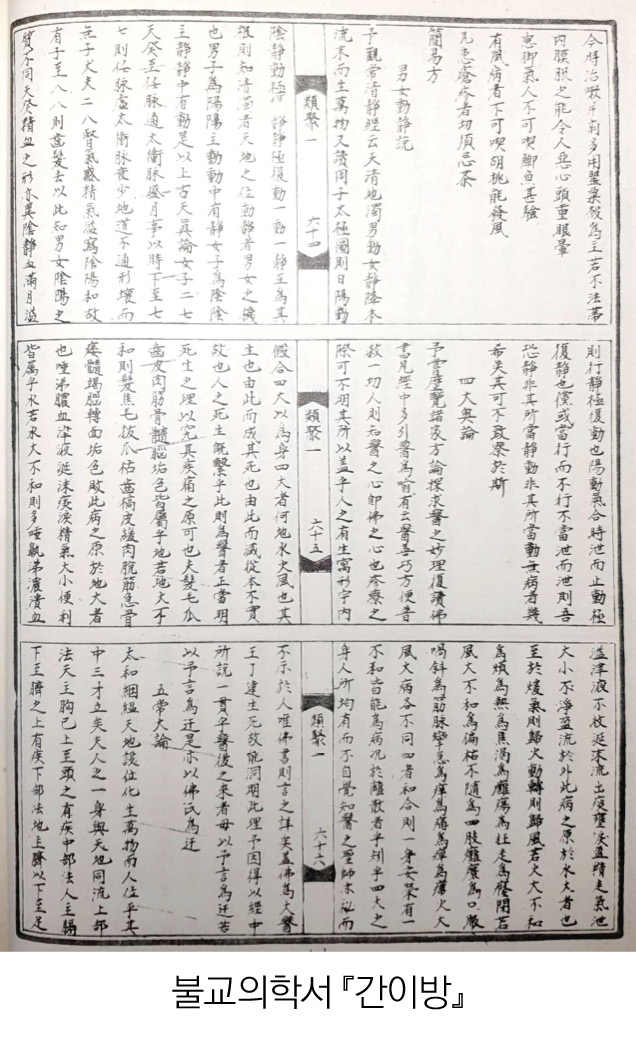 今時治嗽并痢多用罌粟殼為主若不法蒂
內膜服之能令人惡心頭重眼暈
患脚氣人不可喫鯽魚甚驗
有風病者不可喫胡桃能發風
凡患瘡疥者切須忌茶
簡易方
男女動靜說
予觀常清靜經云天清地濁男動女靜降本
流末而生萬物又讀周子太極圖則曰陽動
類聚一 六十四
陰靜動極復靜靜極復動一動一靜互為其
根則知清濁者天地之位動靜者男女之機
也男子為陽陽主動動中有靜女子為陰陰
主靜靜中有動是以上古天真論女子二七
天癸至任脉通太衝脉盛月事以時下至七
七則任脉虛太衝脉衰少地道不通形壞而
無子丈夫二八腎氣盛精氣溢寫陰陽和故
有子至八八則齒髮去以此知男女陰陽之
質不同天癸精血之形亦異陰靜血滿月溢
則行靜極復動也陽動氣合時泄而止動極
復靜也儻或當行而不行不當泄而泄則吾
恐靜非其所當靜動非其所當動無病者幾
希矣其可不致察於斯
四大奧論
予嘗歷覽諸家方論探求醫之妙理復讀佛
書見經中多引醫為喻有云醫善巧方便普
救一切人則知醫之心即佛之心也療之
際可不明其所以盖乎人之有生寓形宇內
類聚一 六十五
假合四大以為身四大者何地水火風也其
生也由此而成其死也由此而滅從本不實
故也人之死生既繫乎此則為醫者正當明
死生之理以究其疾病之原可也夫髮毛爪
齒皮肉筋骨髓腦垢色皆屬乎地若地大不
和則髮焦毛拔爪枯齒槁皮緩肉脫筋急骨
痿髓竭腦轉面垢色敗此病之原於地大者
也唾涕膿血津液涎沫痰淚精氣大小便利
皆屬乎水若水大不和則多唾鼽涕膿潰血
溢津液不收涎沫流出痰壅淚盈精走氣泄
大小不淨盈流於外此病之原於水大者也
至於煖氣則歸火動轉則歸風若火大不和
為煩為熱為焦渴為癰瘍為狂走為癃閉若
風大不和為偏枯不隨為四肢癱瘓為口眼
喎斜為筋脉攣急為痒為痛為痺為麻火大
風大病各不同四者和合則一身安榮有一
不和皆能為病況於離散者乎矧乎四大之
身人所均有而不自覺知醫之聖師亦祕而
類聚一 六十六
不示於人唯佛書則言之詳矣盖佛為大醫
王了達生死故能洞明此理予因得以經中
所說一貫乎醫後之來者毋以予言為迂若
以予言為迂是亦以佛氏為迂
五常大論
太和絪縕天地設位化生萬物而人位乎其
中三才立矣夫人之一身與天地同流上部
法天主胸已上至頭之有疾中部法人主膈
下至臍之上有疾下部法地主臍以下至足
불교의학서 『간이방』